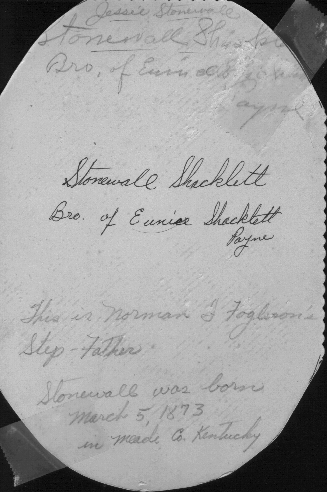 Jessie Stonewall
Stonewall
Bro. of Eunice
ayne
Stonewall Shacklett
Bro. of Eunice Shacklett
Payne
This is Norman
Step-Father
Stonewall was born
March 5, 1873
in Meade Co. Kentucky